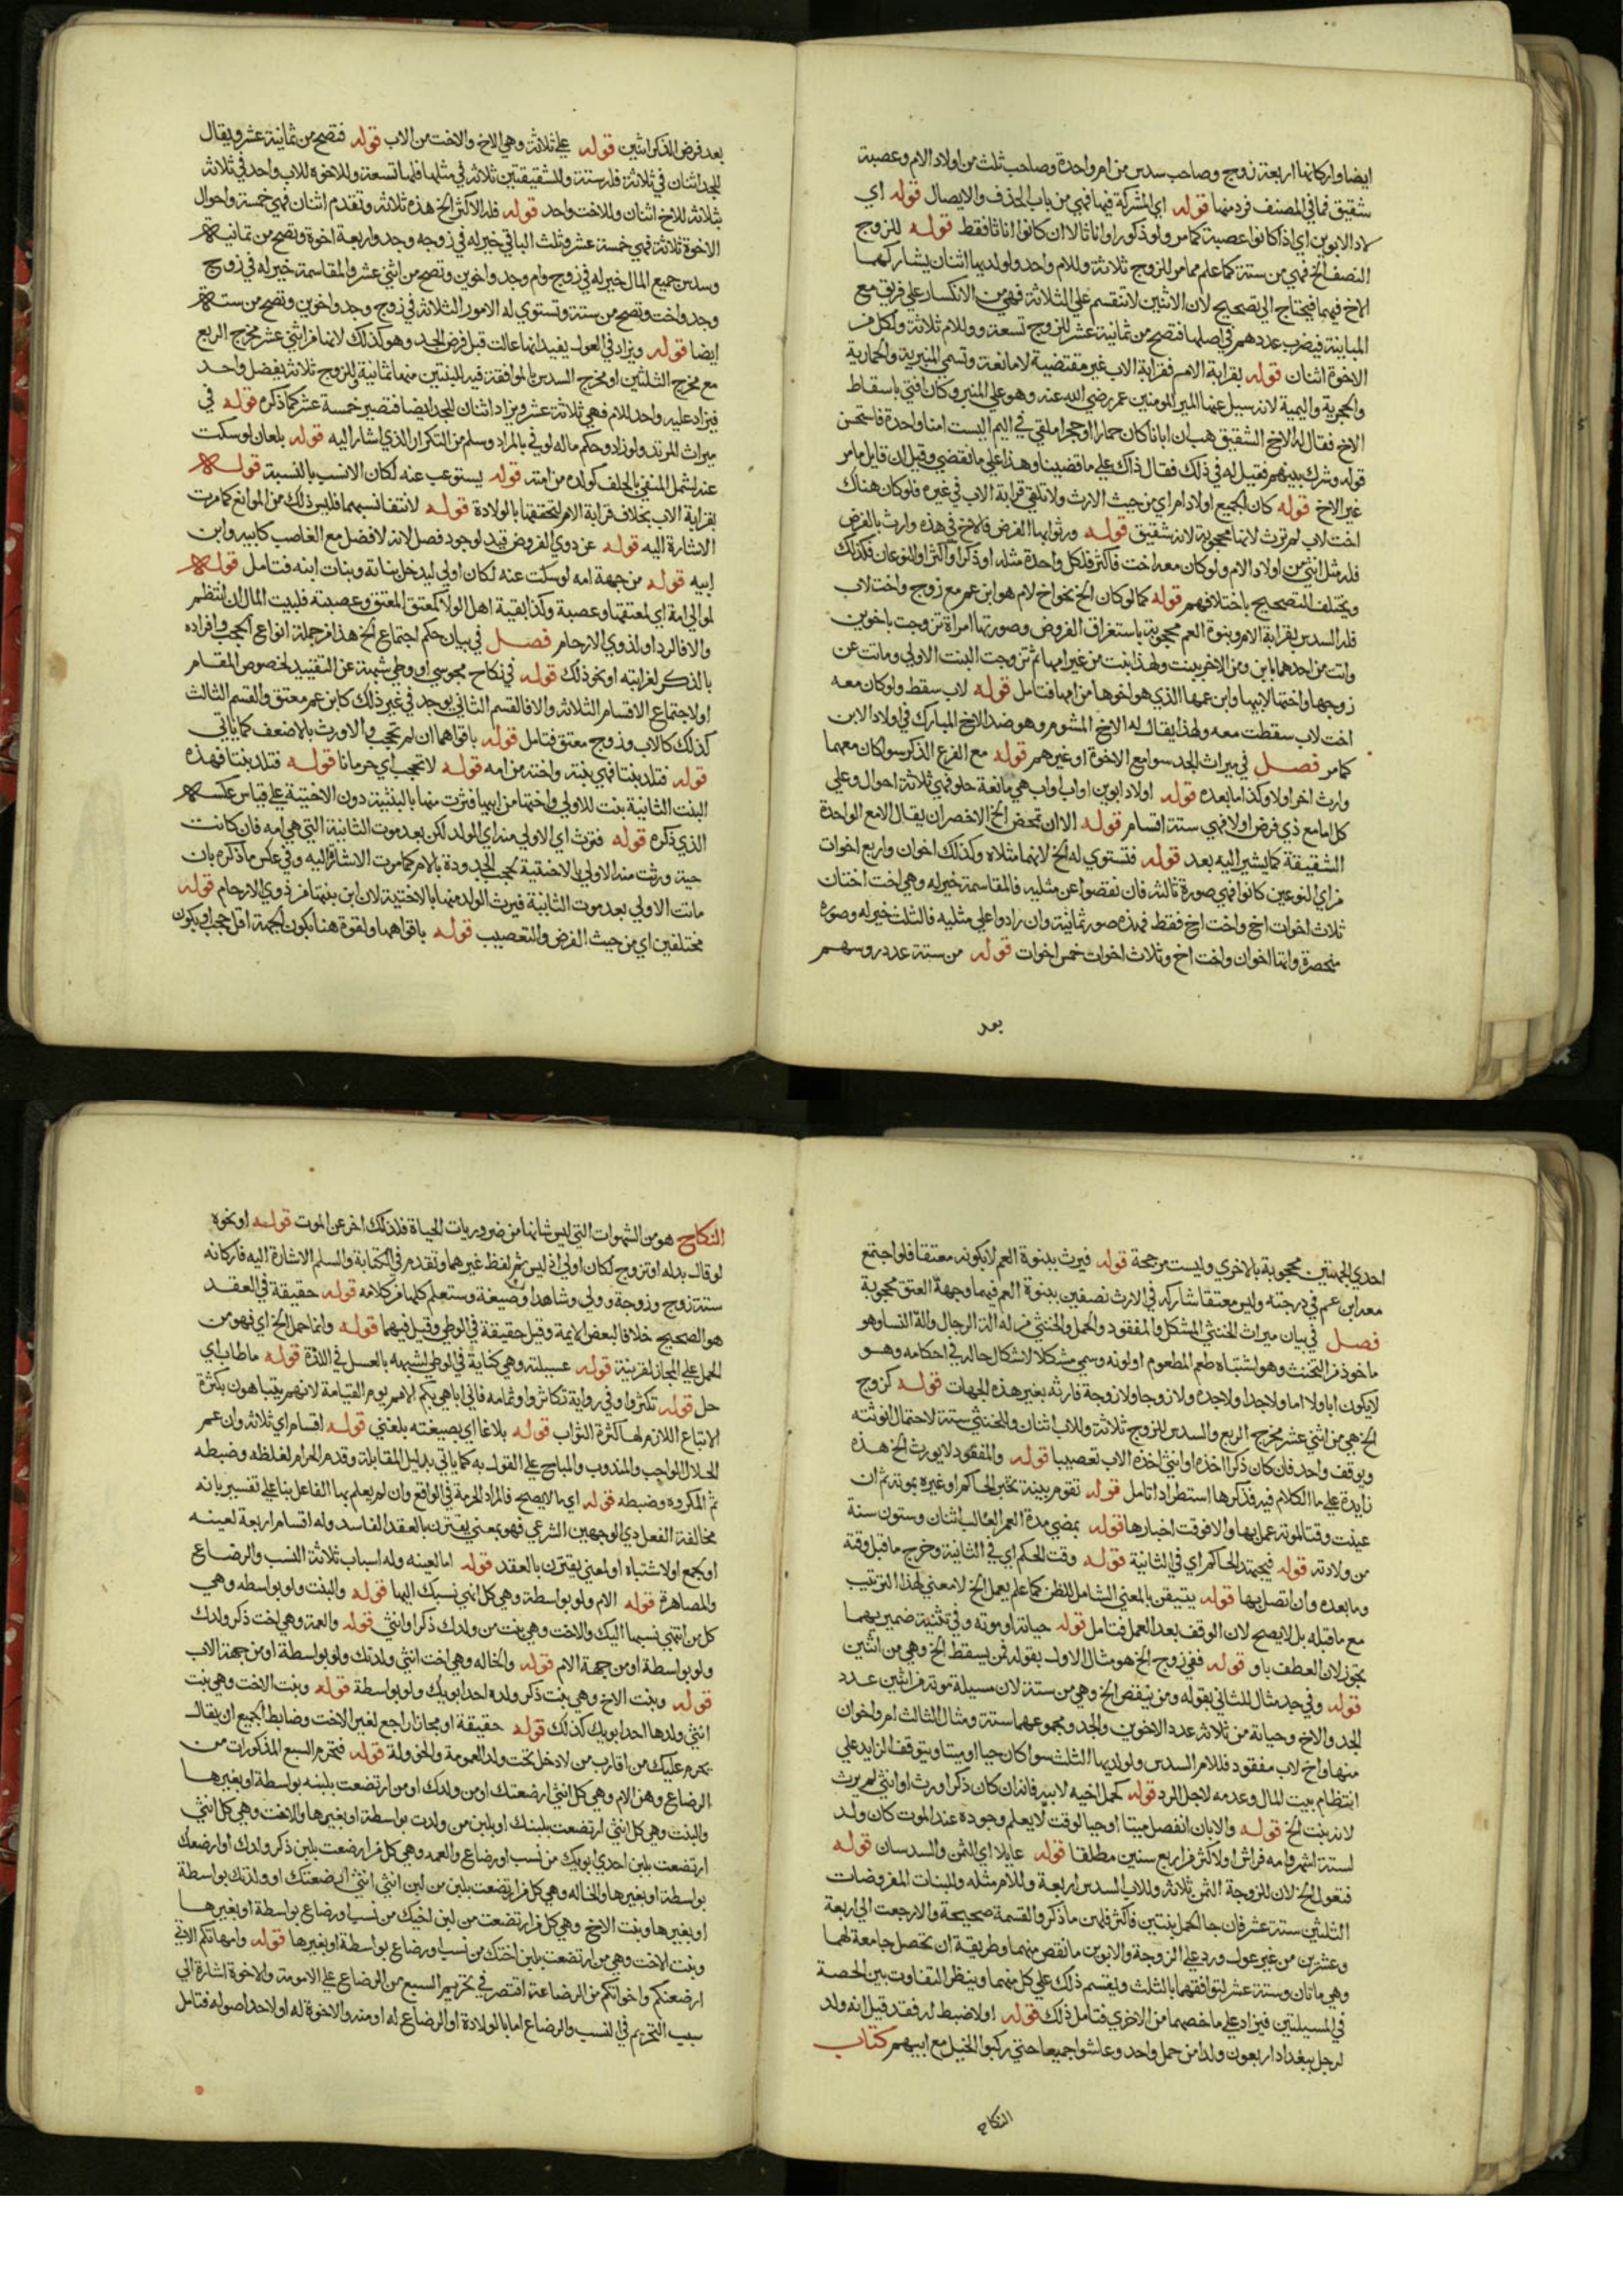 ايضا واركانها اربعة زوج وصاحب سدس من ام واحدة وصاحب ثلث من اولاد الام وعصبة
شقيق فما في المصنف فرد منها قوله اي المشركة فيها فهي من باب الحذف والايصال قوله اي
لاد الابوين اي اذا كانوا عصبة كما مر ولو ذكورا واناثا لا ان كانوا اناثا فقط قوله للزوج
النصف الخ فهي من ستة كما علم مما مر للزوج ثلاثة وللام واحد ولولديها اثنان يشاركهما
الاخ فيهما فيحتاج الى تصحيح لان الاثنين لا تنقسم على الثلاثة فهي من الانكسار على فريق مع
المباينة فيضرب عددهم في اصلها فتصح من ثمانية عشر للزوج تسعة وللام ثلاثة ولكل من
الاخوة اثنان قوله بقرابة الام فقرابة الاب غير مقتضية لا مانعة وتسمى المنبرية والحمارية
والحجرية واليمية لانه سيل عنها امير المومنين عمر رضي الله عنه وهو على المنبر وكان افتى باسقاط
الاخ فقال له الاخ الشقيق هب ان ابانا كان حمارا او حجرا ملقى في اليم اليست امنا واحدة فاستحسن
قوله وشرك بينهم فقيل له في ذلك فقال ذاك على ما قضينا وهذا على ما نقضي وقبل ان قايل ما مر
غير الاخ قوله كان الجميع اولاد ام اي من حيث الارث ولا تلغى قرابة الاب في غيره فلو كان هناك
اخت لاب لم ترث لانها محجوبة لانه شقيق قوله ورثوا بها الفرض فالاخ في هذه وارث بالفرض
فله مثل انثى من اولاد الام ولو كان معه اخت فاكثر فلكل واحدة مثله او ذكر او اكثر او النوعان فكذلك
ويختلف التصحيح باختلافهم قوله كما لو كان الخ نحو اخ لام هو ابن عم مع زوج واخت لاب
فله السدس بقرابة الام وبنوة العم محجوبة باستغراق الفروض وصورتها امراة تزوجت باخوين
واتت من احدهما بابن ومن الاخر ببنت ولهذا بنت من غير امها ثم تزوجت البنت الاولى وماتت عن
زوجها واختها لابيها وابن عمها الذي هو اخوها من امها فتامل قوله لاب سقط ولو كان معه
اخت لاب سقطت معه ولهذا يقال له الاخ المشوم وهو ضد الاخ المبارك في اولاد الابن
كما مر فصل في ميراث الجد سوا مع الاخوة او غيرهم قوله مع الفرع الذكر سوا كان معهما
وارث اخر او لا وكذا ما بعده قوله اولاد ابوين او اب واب هي مانعة خلو فهي ثلاثة احوال وعلى
كل اما مع ذي فرض او لا فهي ستة اقسام قوله الا ان تمحض الخ الاخصر ان يقال الا مع الواحدة
الشقيقة كما يشير اليه بعد قوله فتستوي له الخ لانهما مثلاه وكذلك اخوان واربع اخوات
من اي النوعين كانوا فهي صورة ثالثة فان نقصوا عن مثليه فالمقاسمة خير له وهي اخت اختان
ثلاث اخوات اخ واخت اخ فقط فهذه صور ثمانية وان زادوا على مثليه فالثلث خير له وصوره
منحصرة واقلها اخوان واخت اخ وثلاث اخوات خمس اخوات قوله من ستة عدد روسهم
بعد
بعد فرض الذكر انثيين قوله على ثلاثة وهي الاخ والاخت من الاب قوله فتصح من ثمانية عشر ويقال
للجد اثنان في ثلاثة فله ستة وللشقيقتين ثلاثة في مثلها فلها تسعة وللاخوة للاب واحد في ثلاثة
بثلاثة للاخ اثنان وللاخت واحد قوله فله الاكثر الخ هذه ثلاثة وتقدم اثنان فهي خمسة واحوال
الاخوة ثلاثة فهي خمسة عشر وثلث الباقي خير له في زوجة وجد واربعة اخوة وتصح من ثمانية
وسدس جميع المال خير له في زوج وام وجد واخوين وتصح من اثني عشر والمقاسمة خير له في زوج
وجد واخت وتصح من ستة وتستوي له الامور الثلاثة في زوج وجد واخوين وتصح من ستة
ايضا قوله ويزاد في العول يفيد انها عالت قبل فرض الجد وهو كذلك لانها من اثني عشر مخرج الربع
مع مخرج الثلثين او مخرج السدس بالموافقة فيه للبنتين منها ثمانية وللزوج ثلاثة يفضل واحد
فيزاد عليه واحد للام فهي ثلاثة عشر ويزاد اثنان للجد ايضا فتصير خمسة عشر كما ذكره قوله في
ميراث المرتد ولو زاد وحكم ماله لوفى بالمراد وسلم من التكرار الذي اشار اليه قوله بلعان لو سكت
عنه لشمل المنفي بالحلف كولده من امته قوله يستوعب عنه لكان الانسب بالنسبة قوله
بقرابة الاب بخلاف قرابة الام لتحققها بالولادة قوله لانتفا نسبهما فليس ذلك من الموانع كما مرت
الاشارة اليه قوله عن ذوي الفروض قيد لوجود فصل لانه لا فضل مع الغاصب كابيه وابن
ابيه قوله من جهة امه لو سكت عنه لكان اولى ليدخل بناته وبنات ابنه فتامل قوله
لموالي امه اي لمعتقها وعصبة وكذا بقية اهل الولا كمعتق المعتق وعصبته فلبيت المال ان انتظم
والا فالرد او لذوي الارحام فصل في بيان حكم اجتماع الخ هذا من جملة انواع الحجب وافراده
بالذكر لغرابته او نحو ذلك قوله في نكاح مجوسي او وطي شبهة عن التقييد لخصوص المقام
او لاجتماع الاقسام الثلاثة والا فالقسم الثاني يوجد في غير ذلك كابن عم معتق والقسم الثالث
كذلك كالاب وزوج معتق فتامل قوله باقواهما ان لم تحجب والا ورث بالاضعف كما ياتي
قوله فتلد بنتا فهي بنته واخته من امه قوله لا تحجب اي حرمانا قوله فتلد بنتا فهذه
البنت الثانية بنت للاولى واختها من ابيها فترث منها بالبنتية دون الاختية على قياس عكسه
الذي ذكره قوله فترث اي الاولى منه اي الولد لكن بعد موت الثانية التي هي امه فان كانت
حية ورثت منه الاولى بالاختية لحجب الجدودة بالام كما مرت الاشارة اليه وفي عكس ما ذكره بان
ماتت الاولى بعد موت الثانية فيرث الولد منها بالاختية لان ابن بنتها من ذوي الارحام قوله
مختلفين اي من حيث الفرض والتعصيب قوله باقواهما والقوة هنا بكون الجهة اقل حجبا وبكون
احدى الجهتين محجوبة بالاخرى وليست مرجحة قوله فيرث ببنوة العم لا بكونه معتقا فلو اجتمع
معه ابن عم في درجته وليس معتقا شاركه في الارث نصفين ببنوة العم فيهما وجهة العتق محجوبة
فصل في بيان ميراث الخنثى المشكل والمفقود والحمل والخنثى من له الة الرجال والة النسا وهو
ماخوذ من التخنث وهو اشتباه طعم المطعوم او لونه وسمي مشكلا لاشكال حاله في احكامه وهو
لا يكون ابا ولا اما ولا جدا ولا جدة ولا زوجا ولا زوجة فارثه بغير هذه الجهات قوله كزوج
الخ هي من اثني عشر مخرج الربع والسدس للزوج ثلاثة وللاب اثنان وللخنثى ستة لاحتمال انوثته
ويوقف واحد فان كان ذكرا اخذه او انثى اخذه الاب تعصيبا قوله والمفقود لا يورث الخ هذه
زايدة على ما الكلام فيه فذكرها استطرادا تامل قوله تقوم بينة تخبر الحاكم او غيره بموته ثم ان
عينت وقتا لموته عمل بها والا فوقت اخبارها قوله بمضي مدة العمر الغالب اثنان وستون سنة
من ولادته قوله فيجتهد الحاكم اي في الثانية قوله وقت الحكم اي في الثانية وخرج ما قبل وقته
وما بعده وان اتصل بها قوله يتيقن بالمعنى الشامل للظن كما علم يعمل الخ لا معنى لهذا الترتيب
مع ما قبله بل لا يصح لان الوقف بعد العمل فتامل قوله حياته او موته وفي تثنية ضمير بهما
تجوز لان العطف باو قوله ففي زوج الخ هو مثال الاول بقوله فمن يسقط الخ وهي من اثنين
قوله وفي جد مثال للثاني بقوله ومن ينقص الخ وهي من ستة لان مسيلة موته من اثنين عدد
الجد والاخ وحياته من ثلاثة عدد الاخوين والجد ومجموعهما ستة ومثال الثالث ام واخوان
منها واخ لاب مفقود فللام السدس ولولديها الثلث سوا كان حيا او ميتا ويتوقف الزايد على
انتظام بيت المال وعدمه لاجل الرد قوله كحمل اخيه لابيه فانه ان كان ذكرا ورث او انثى لم يرث
لانه بنت الخ قوله والا بان انفصل ميتا او حيا لوقت لا يعلم وجوده عند الموت كان ولد
لستة اشهر وامه فراش او لاكثر من اربع سنين مطلقا قوله عايلا اي الثمن والسدسان قوله
فتعول الخ لان للزوجة الثمن ثلاثة وللاب السدس اربعة وللام مثله وللبنات المفروضات
الثلثين ستة عشر فان جا الحمل بنتين فاكثر فلهن ما ذكر والقسمة صحيحة والا رجعت الى اربعة
وعشرين من غير عول ورد على الزوجة والابوين ما نقص منهما وطريقة ان تحصل جامعة لهما
وهي ماتان وستة عشر لتوافقهما بالثلث ويقسم ذلك على كل منهما وينظر التفاوت بين الحصة
في المسيلتين فيزاد على ما خصهما من الاخرى فتامل ذلك قوله او لا ضبط له فقد قيل انه ولد
لرجل ببغداد اربعون ولدا من حمل واحد وعاشوا جميعا حتى ركبوا الخيل مع ابيهم كتاب
النكاح
النكاح هو من الشهوات التي ليس شانها من ضروريات الحياة فلذلك اخر عن الموت قوله او نحوه
لو قال بدله او تزوج لكان اولى اذ ليس ثم لفظ غيرهما وتقدم في الكتابة والسلم الاشارة اليه فاركانه
ستة زوج وزوجة وولي وشاهدان وصيغة وستعلم كلها من كلامه قوله حقيقة في العقد
هو الصحيح خلافا لبعض الايمة وقيل حقيقة في الوطي وقيل فيهما قوله وانما حمل الخ اي فهو من
الحمل على المجاز لقرينة قوله عسيلته وهي كناية في الوطي لشبهه بالعسل في اللذة قوله ما طاب اي
حل قوله تكثروا وفي رواية تكاثروا وتمامه فاني اباهي بكم الامم يوم القيامة لانهم يتباهون بكثرة
الاتباع اللازم لها كثرة الثواب قوله بلاغا اي بصيغته بلغني قوله اقسام اي ثلاثة وان عم
الحلال الواجب والمندوب والمباح على القول به كما ياتي بدليل المقابلة وقدم الحرام لغلظه وضبطه
ثم المكروه وضبطه قوله اي ما لا يصح فالمراد الحرمة في الواقع وان لم يعلم بها الفاعل بنا على تفسيره بانه
مخالفة الفعل ذي الوجهين الشرعي فهو بمعنى يقترن بالعقد الفاسد وله اقسام اربعة لعينه
او لجمع او لاشتباه او لمعنى يقترن بالعقد قوله اما لعينه وله اسباب ثلاثة النسب والرضاع
والمصاهرة قوله الام ولو بواسطة وهي كل انثى نسبك اليها قوله والبنت ولو بواسطه وهي
كل من انتهى نسبها اليك والاخت وهي بنت من ولدك ذكرا او انثى قوله والعمة وهي اخت ذكر ولدك
ولو بواسطة او من جهة الام قوله والخاله وهي اخت انثى ولدتك ولو بواسطة او من جهة الاب
قوله وبنت الاخ وهي بنت ذكر ولده احد ابويك ولو بواسطة قوله وبنت الاخت وهي بنت
انثى ولدها احد ابويك كذلك قوله حقيقة او مجازا راجع لغير الاخت وضابط الجميع ان يقال
تحرم عليك من اقارب من لا دخل تحت ولد العمومة والخولة قوله فتحرم السبع المذكورات من
الرضاع وهن الام وهي كل انثى ارضعتك او من ولدك او من ارتضعت بلبنه بواسطة او بغيرها
والبنت وهي كل انثى ارتضعت بلبنك او بلبن من ولدت بواسطة او بغيرها والاخت وهي كل انثى
ارتضعت بلبن احدى ابويك من نسب او رضاع والعمه وهي كل من ارتضعت بلبن ذكر ولدك او ارضعك
بواسطة او بغيرها والخاله وهي كل من ارتضعت بلبن من لبن انثى انثى ارضعتك او ولدتك بواسطة
او بغيرها وبنت الاخ وهي كل من ارتضعت من لبن اخيك من نسب او رضاع بواسطة او بغيرها
وبنت الاخت وهي من ارتضعت بلبن اختك من نسب او رضاع بواسطة او بغيرها قوله وامهاتكم الاتي
ارضعنكم واخواتكم من الرضاعة اقتصر في تحريم السبع من الرضاع على الامومة والاخوة اشارة الى
سبب التحريم في النسب والرضاع اما بالولادة او الرضاع له او منه والاخوة له او لاحد اصوله فتامل